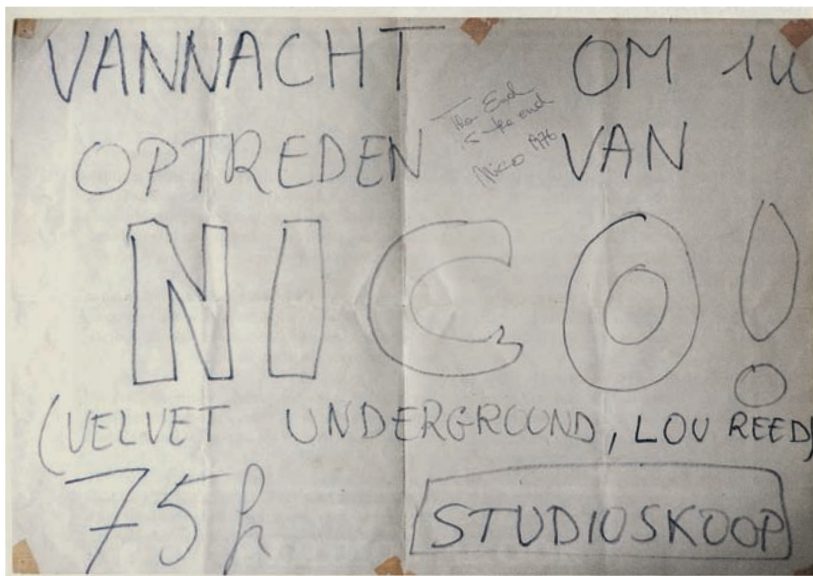 VANNACHT OM 1U
OPTREDEN VAN
The End
is the end
Nico 1976
NICO!
(VELVET UNDERGROUND, LOU REED)
75fr
STUDIOSKOOP